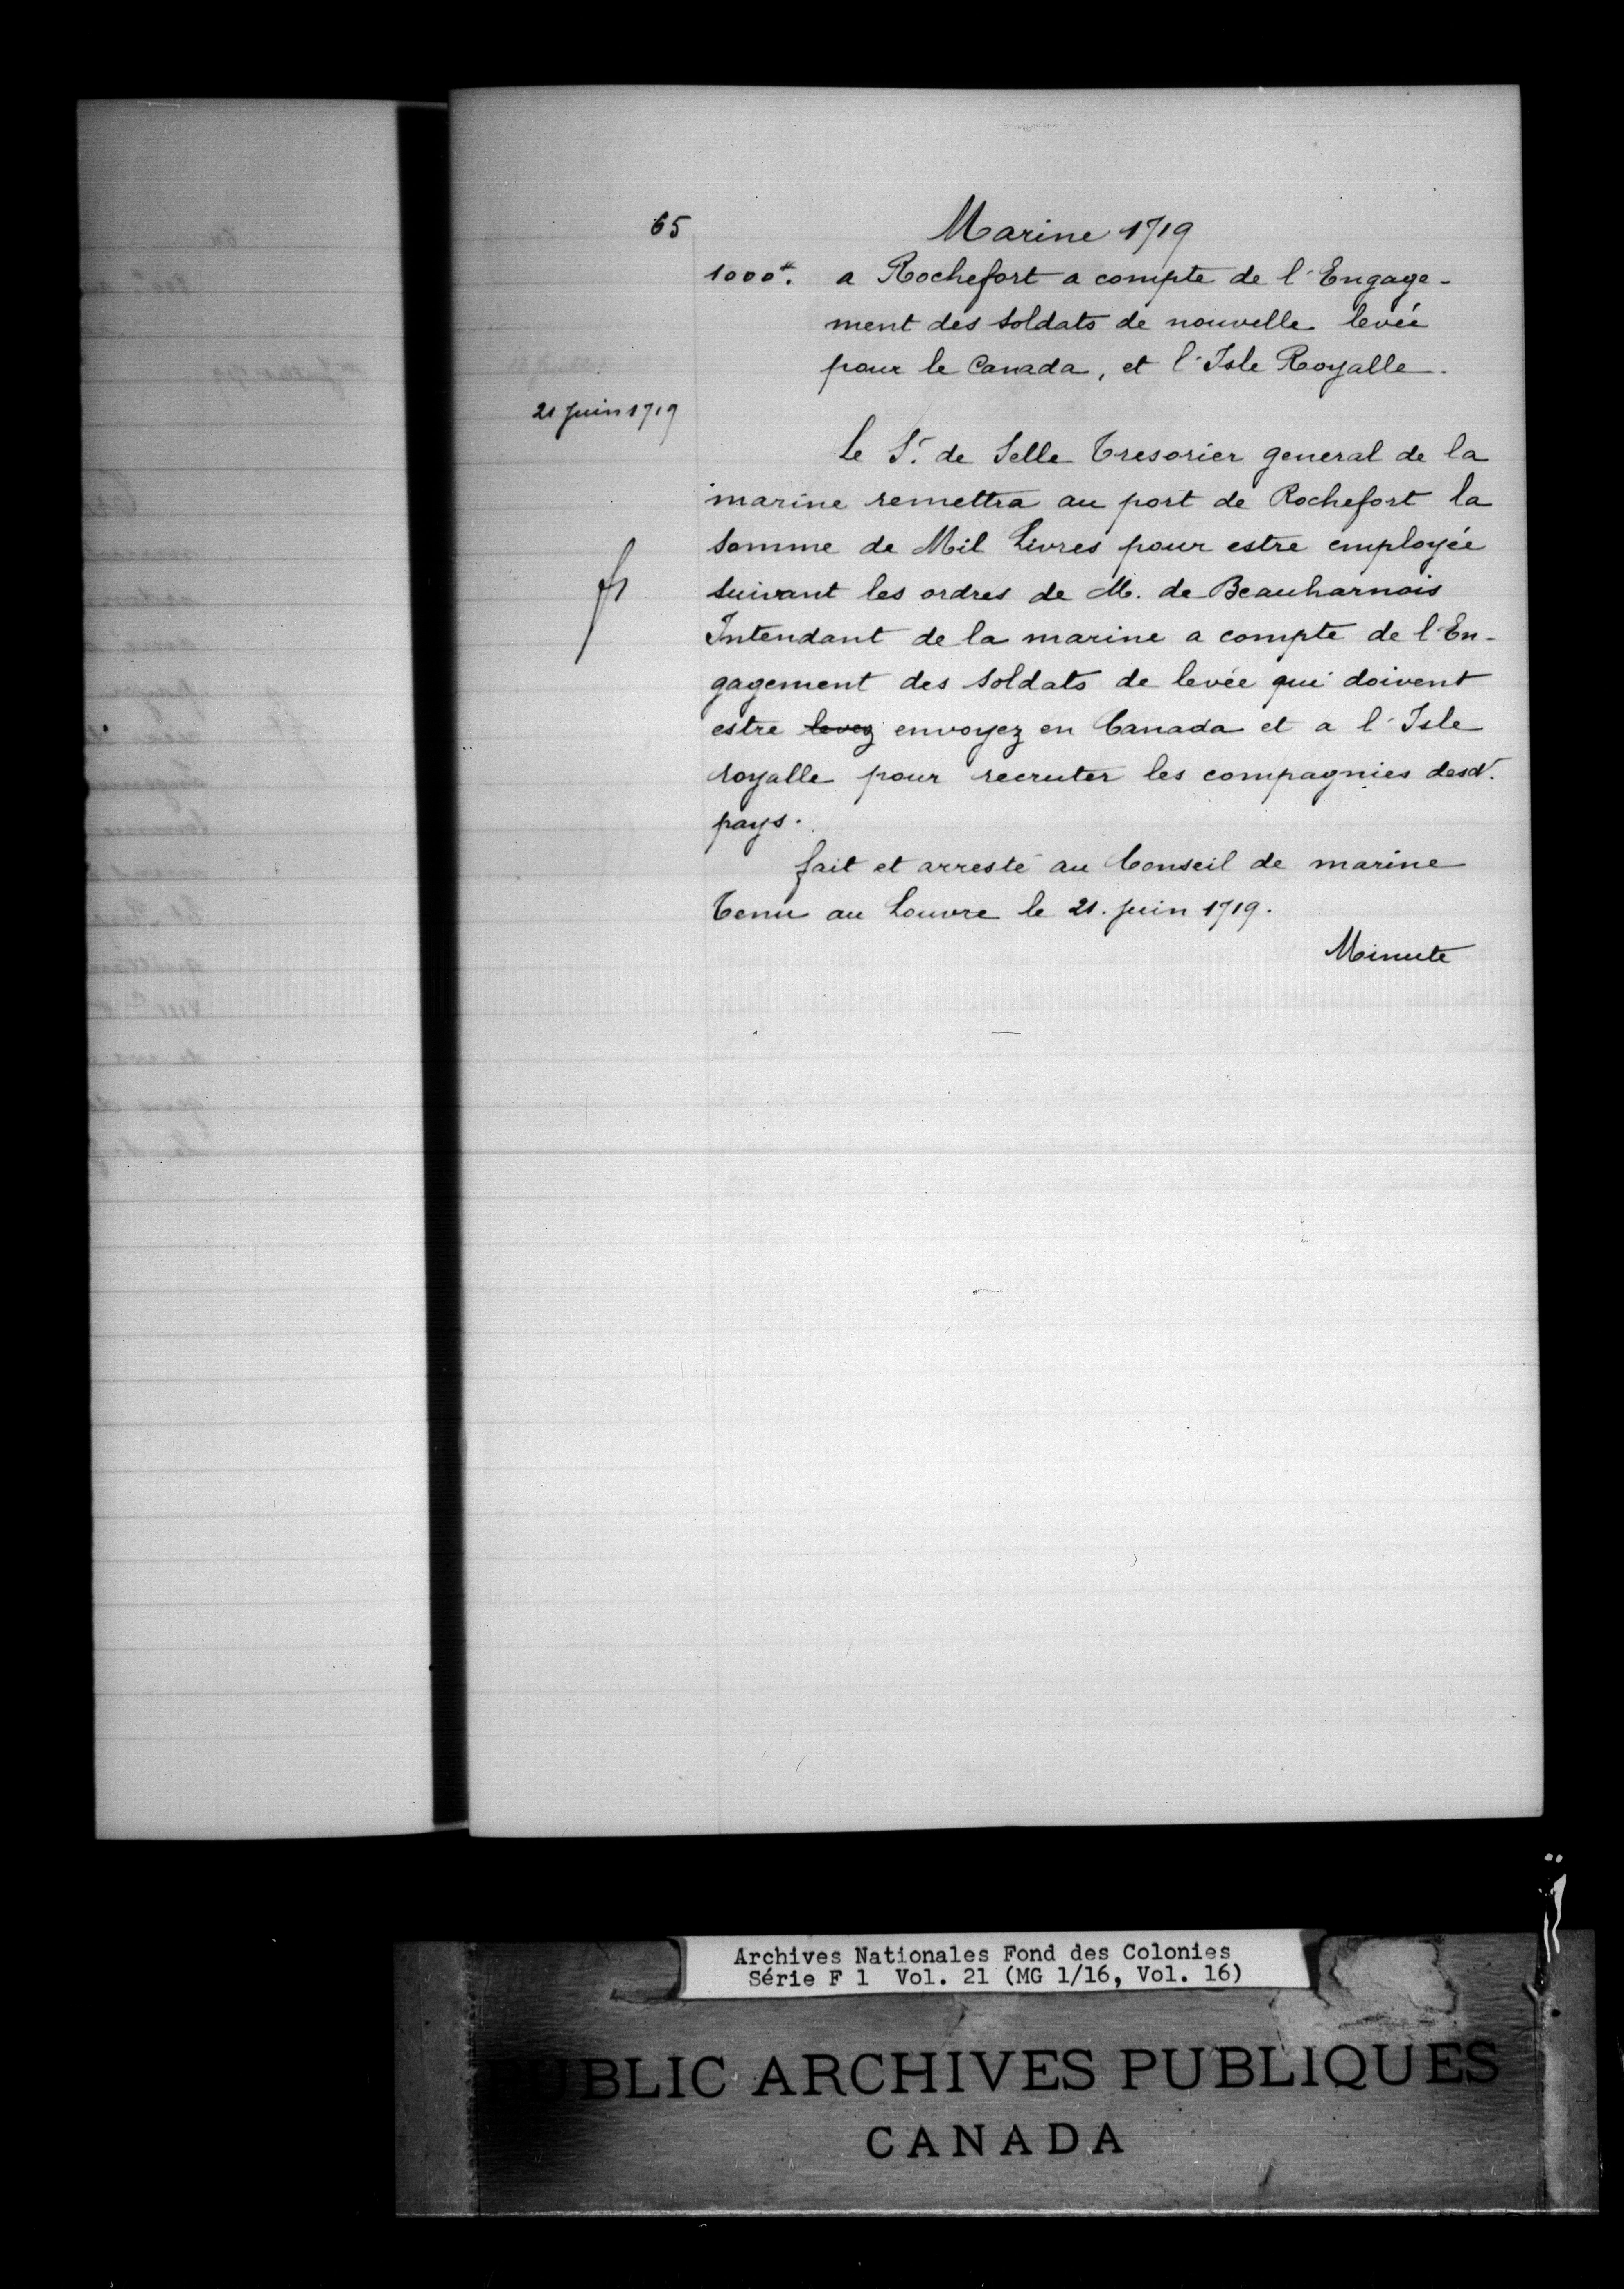 65
Marine 1719
1000#. a Rochefort a compte de l'Engage-
ment des soldats de nouvelle levée
pour le Canada, et l'Isle Royalle.
21 juin 1719
Le Sr. de Selle Tresorier general de la
marine remettra au port de Rochefort la
somme de Mil Livres pour estre employée
suivant les ordres de M. de Beauharnois
Intendant de la marine a compte de l'En-
gagement des soldats de levée qui doivent
estre levez envoyez en Canada et a l'Isle
royalle pour recruter les compagnies desd.
pays.
fait et arresté au Conseil de marine
Tenu au Louvre le 21. juin 1719.
Minute
Archives Nationales Fond des Colonies
Série F 1 Vol. 21 (MG 1/16, Vol. 16)
PUBLIC ARCHIVES PUBLIQUES
CANADA